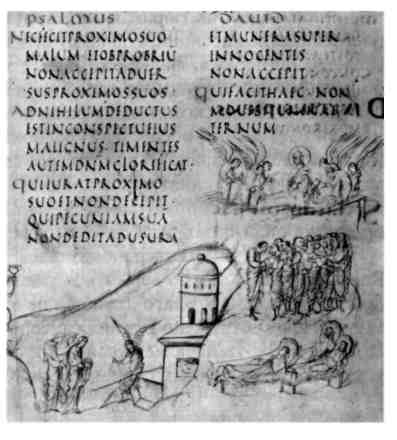 PSALMUS
DAUID
NECFECITPROXIMOSUO
MALUM·ETOBPROBRIŪ
NONACCEPITADUER
SUSPROXIMOSSUOS·
ADNIHILUMDEDUCTUS
ESTINCONSPECTUEIUS
MALIGNUS·TIMENTES
AUTEMDNMGLORIFICAT·
QUIIURATPROXIMO
SUOETNONDECIPIT·
QUIPECUNIAMSUĀ
NONDEDITADUSURA
ETMUNERASUPER
INNOCENTES
NONACCEPIT
QUIFACITHAEC·NON
TERNUM